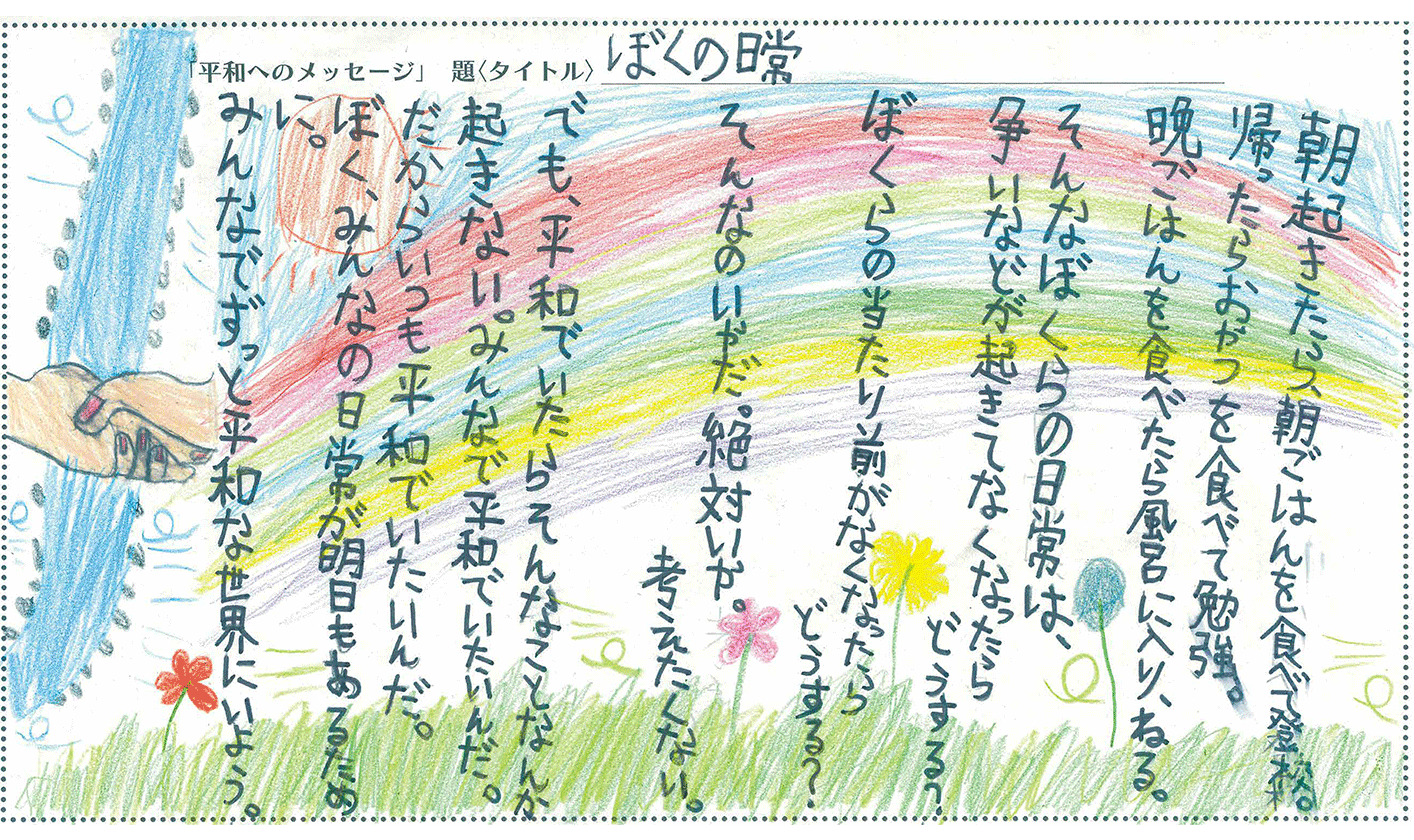 「平和へのメッセージ」 題〈タイトル〉 ぼくの日常
朝起きたら、朝ごはんを食べて登校。
帰ったらおやつを食べて勉強。
晩ごはんを食べたら風呂に入り、ねる。
そんなぼくらの日常は、
争いなどが起きてなくなったら
どうする?
ぼくらの当たり前がなくなったら
どうする?
そんなのいやだ。絶対いや。
考えたくない。
でも、平和でいたらそんなことなんか
起きない。みんなで平和でいたいんだ。
だからいつも平和でいたいんだ。
ぼく、みんなの日常が明日もあるため
に。
みんなでずっと平和な世界にいよう。